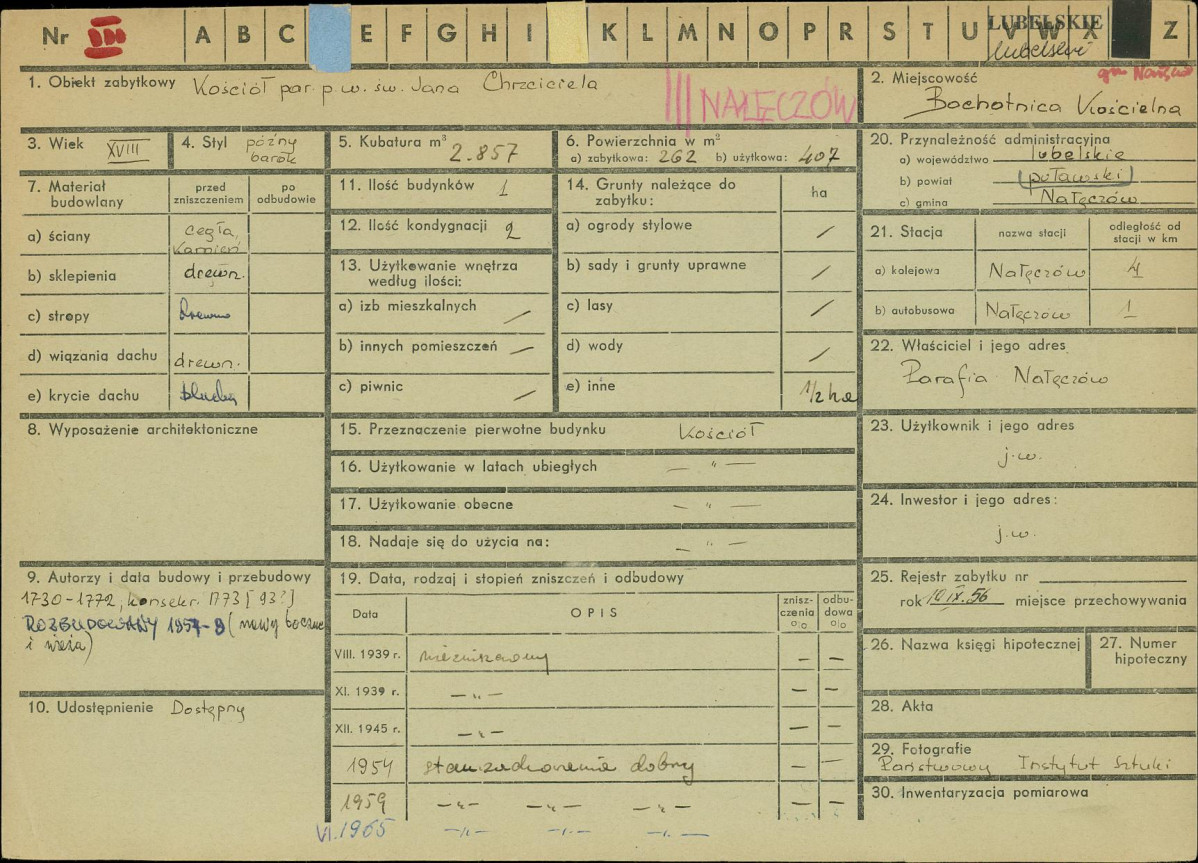 Nr III A B C E F G H I K L M N O P R S T U V W X Z
LUBELSKIE
lubelskie
1. Obiekt zabytkowy Kościół par. p.w. św. Jana Chrzciciela
III NAŁĘCZÓW
2. Miejscowość
Bochotnica Kościelna
3. Wiek XVIII
4. Styl późny barok
5. Kubatura m³ 2.857
6. Powierzchnia w m²
a) zabytkowa: 262 b) użytkowa: 407
20. Przynależność administracyjna
a) województwo lubelskie
b) powiat (puławski)
c) gmina Nałęczów
7. Materiał budowlany
przed zniszczeniem
po odbudowie
a) ściany cegła, kamień
b) sklepienia drewn.
c) stropy drewno
d) wiązania dachu drewn.
e) krycie dachu blacha
11. Ilość budynków 1
12. Ilość kondygnacji 2
13. Użytkowanie wnętrza według ilości:
a) izb mieszkalnych /
b) innych pomieszczeń /
c) piwnic /
14. Grunty należące do zabytku:
ha
a) ogrody stylowe /
b) sady i grunty uprawne /
c) lasy /
d) wody /
e) inne 1/2 ha
21. Stacja
nazwa stacji
odległość od stacji w km
a) kolejowa Nałęczów 4
b) autobusowa Nałęczów 1
22. Właściciel i jego adres
Parafia Nałęczów
8. Wyposażenie architektoniczne
15. Przeznaczenie pierwotne budynku Kościół
16. Użytkowanie w latach ubiegłych — " —
17. Użytkowanie obecne — " —
18. Nadaje się do użycia na: — " —
23. Użytkownik i jego adres
j.w.
24. Inwestor i jego adres:
j.w.
9. Autorzy i data budowy i przebudowy
1730-1772, konsekr. 1773 [93?]
ROZBUDOWANY 1957-8 (nawy boczne
i wieża)
10. Udostępnienie Dostępny
19. Data, rodzaj i stopień zniszczeń i odbudowy
Data
OPIS
zniszczenia %
odbudowa %
VIII. 1939 r. niezniszczony — —
XI. 1939 r. — " — — —
XII. 1945 r. — " — — —
1954 stan zachowania dobry — —
1959 — " — — " — — " — — —
VI. 1965 — " — — " — — " —
25. Rejestr zabytku nr
rok 10 IX. 56 miejsce przechowywania
26. Nazwa księgi hipotecznej
27. Numer hipoteczny
28. Akta
29. Fotografie
Państwowy Instytut Sztuki
30. Inwentaryzacja pomiarowa